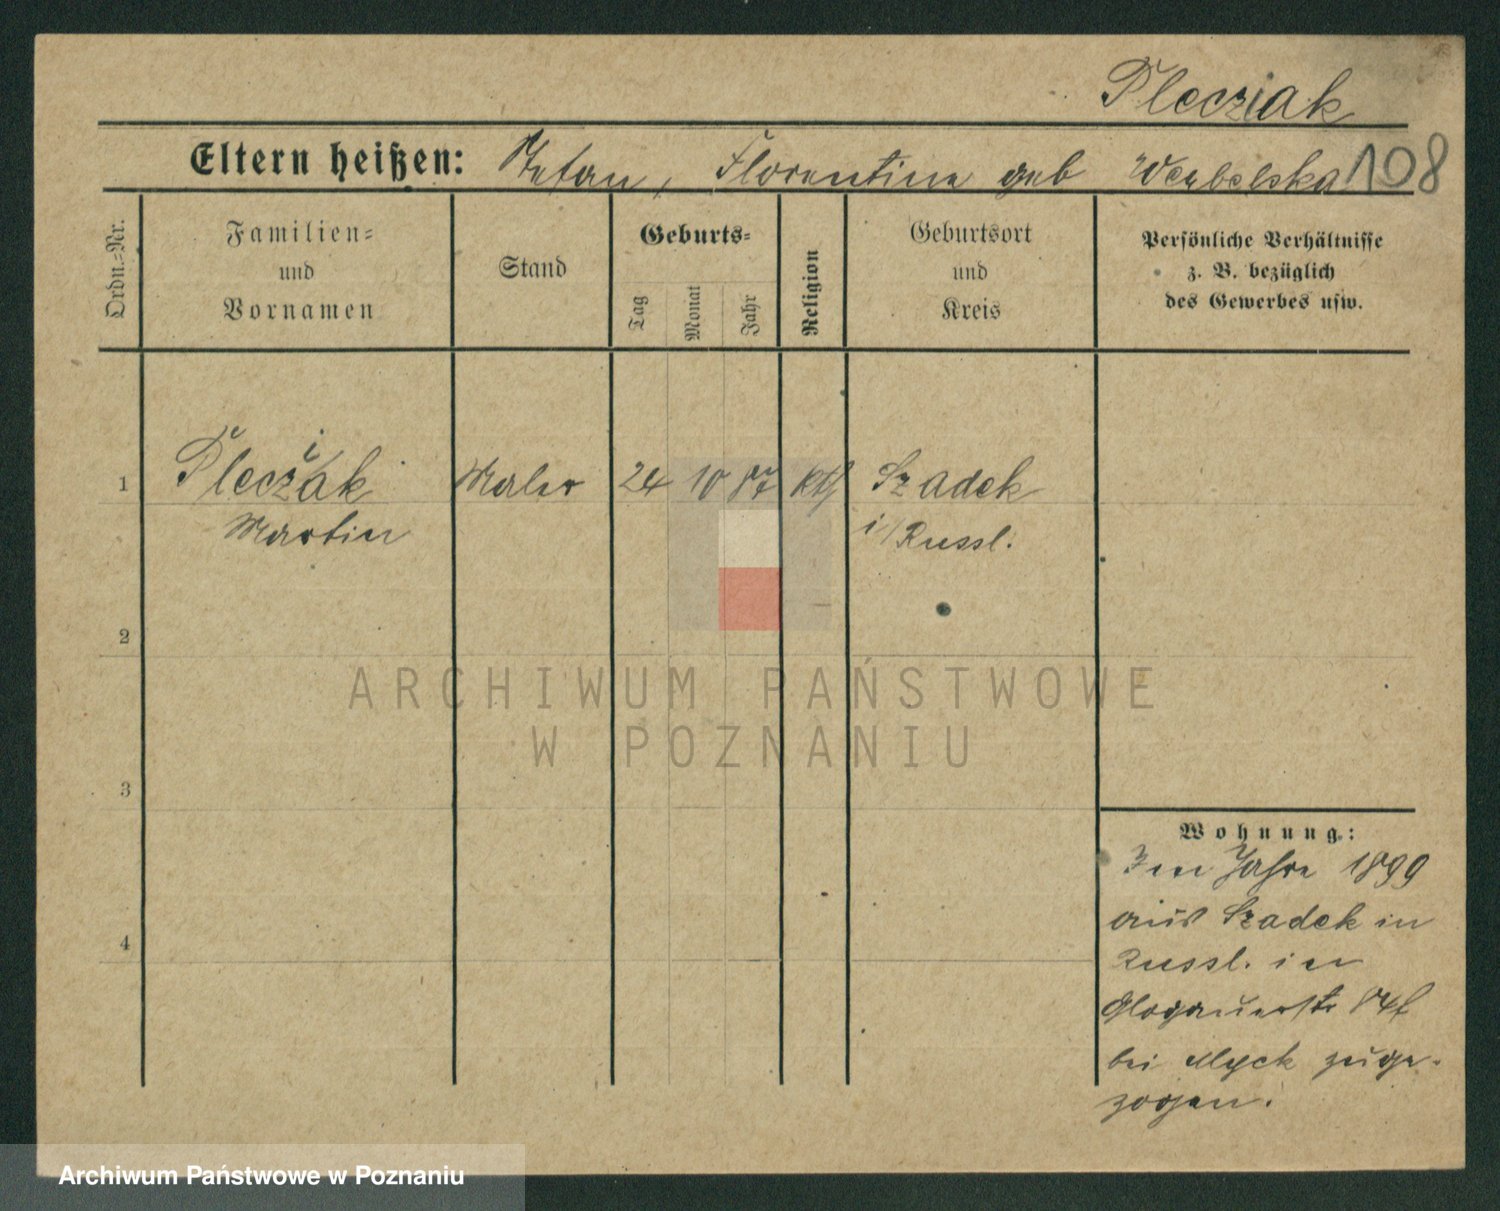 Plecziak
Eltern heißen: Stefan, Florentine geb Werbelska 108
Ordn.=Nr.
Familien=
und
Vornamen
Stand
Geburts=
Tag
Monat
Jahr
Religion
Geburtsort
und
Kreis
Persönliche Verhältnisse
z. B. bezüglich
des Gewerbes usw.
i
1 Pleczak Maler 24 10 87 kth Szadek
Martin i/Russl.
2
3
4
Wohnung:
Im Jahre 1899
aus Szadek in
Russl. in
Glogauerstr 84
bei Myck zuge-
zogen.
ARCHIWUM PAŃSTWOWE
W POZNANIU
Archiwum Państwowe w Poznaniu